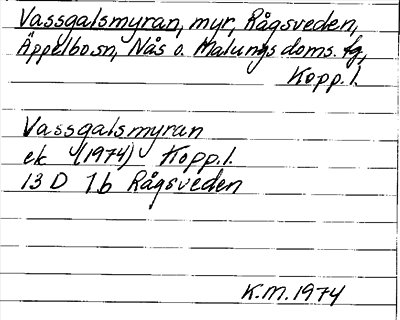 Vassgalsmyran, myr, Rågsveden,
Äppelbo sn, Nås o. Malungs doms. fg,
Kopp. l.
Vassgalsmyran
ek (1974) Kopp. l.
13 D 7b Rågsveden
K.M. 1974